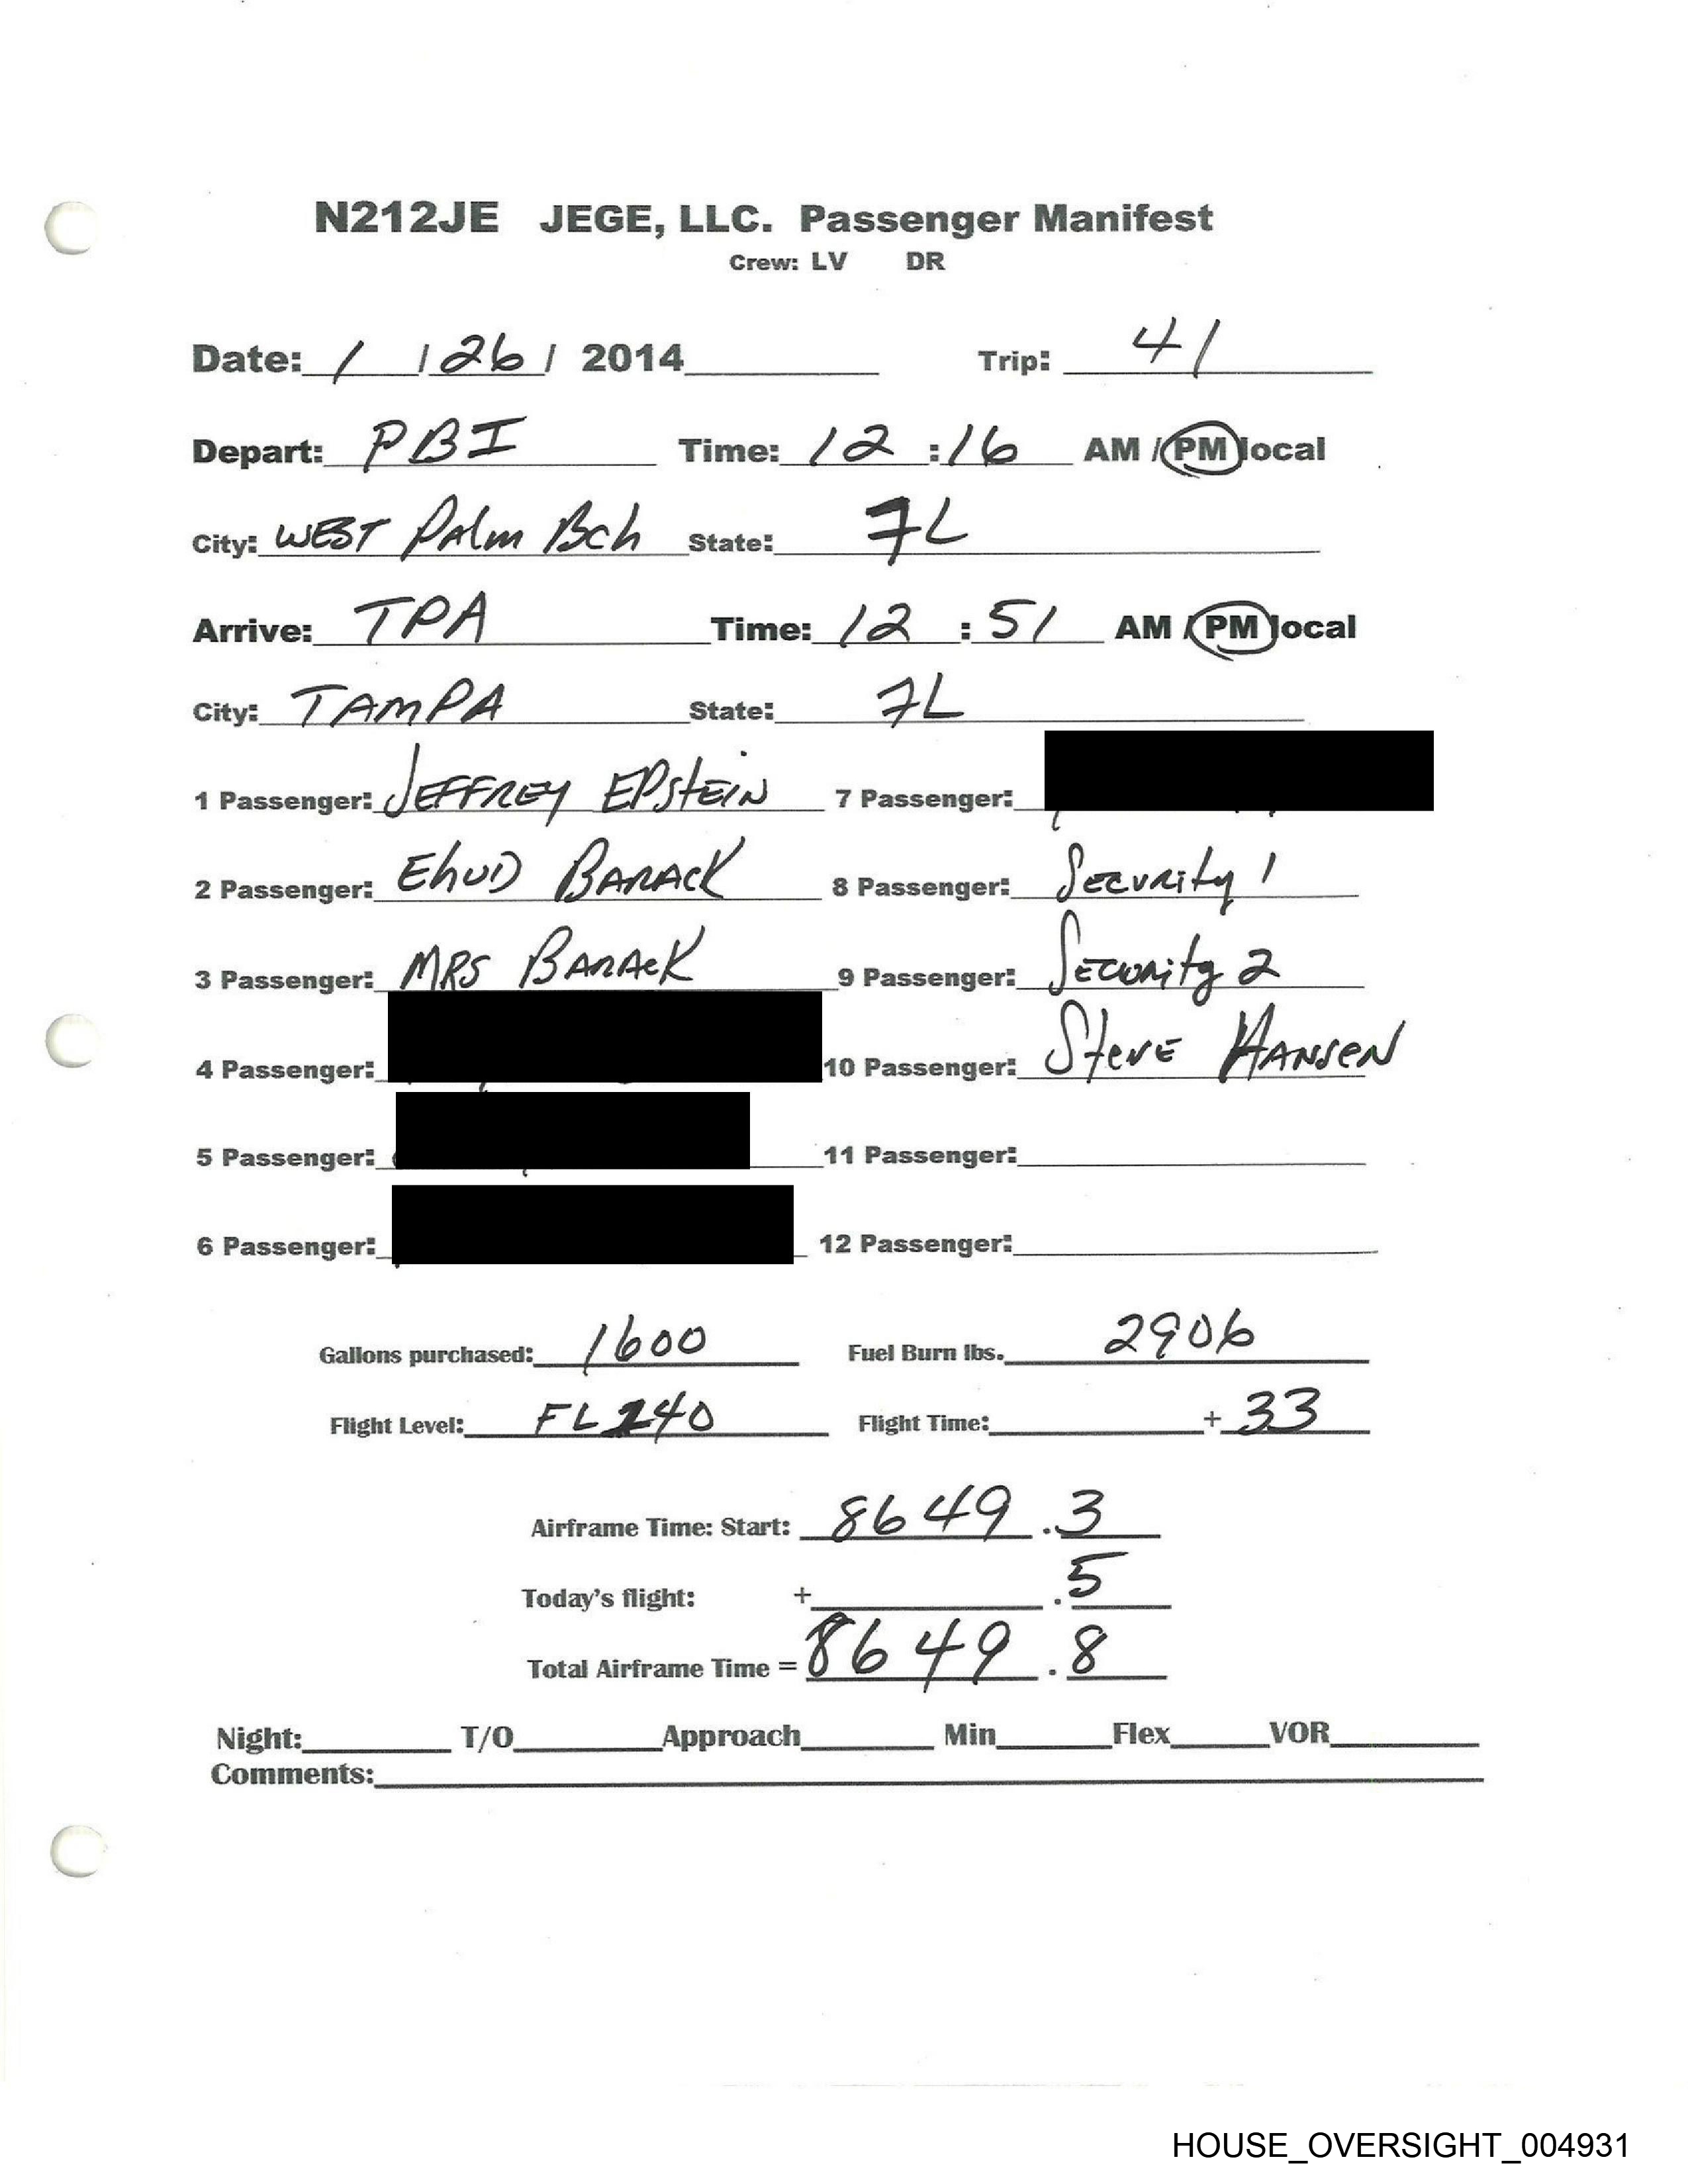 N212JE JEGE, LLC. Passenger Manifest
Crew: LV DR
Date: 1 / 26 / 2014 Trip: 41
Depart: PBI Time: 12 : 16 AM / PM local
City: WEST PALM Bch State: FL
Arrive: TPA Time: 12 : 51 AM / PM local
City: TAMPA State: FL
1 Passenger: JEFFREY EPSTEIN 7 Passenger:
2 Passenger: EhUD BARACK 8 Passenger: Security 1
3 Passenger: MRS BARACK 9 Passenger: Security 2
4 Passenger: 10 Passenger: Steve HANSEN
5 Passenger: 11 Passenger:
6 Passenger: 12 Passenger:
Gallons purchased: 1600 Fuel Burn lbs. 2906
Flight Level: FL 240 Flight Time: + 33
Airframe Time: Start: 8649 .3
Today's flight: + .5
Total Airframe Time = 8649 .8
Night: T/O Approach Min Flex VOR
Comments:
HOUSE_OVERSIGHT_004931